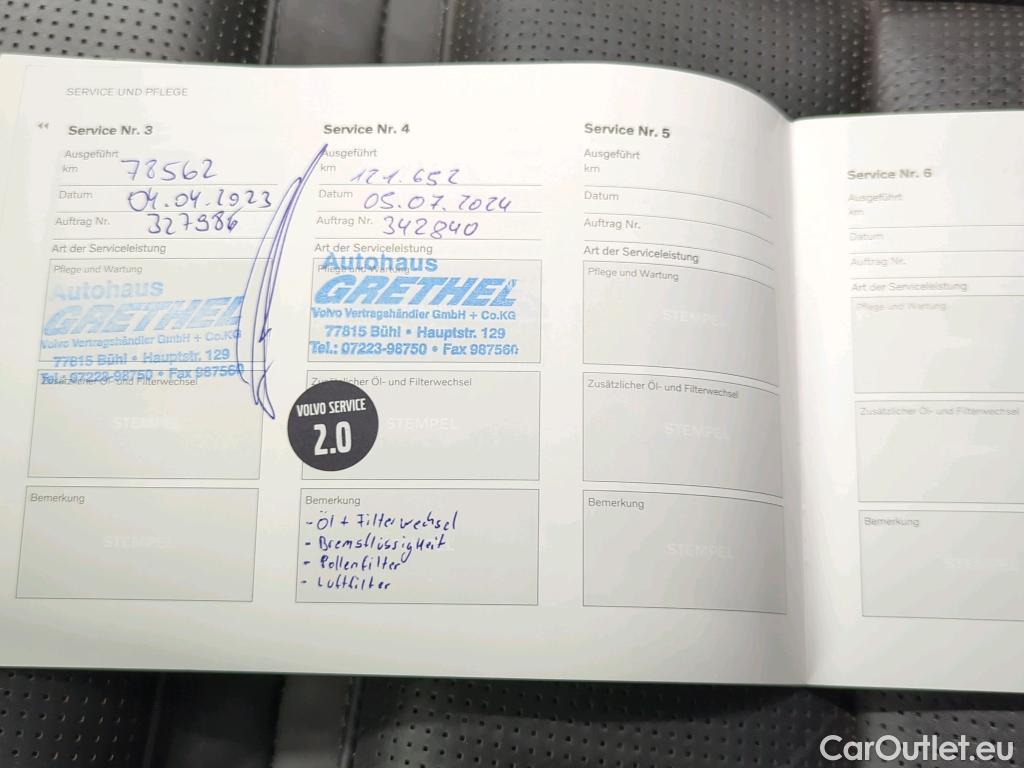 SERVICE UND PFLEGE
Service Nr. 3
Ausgeführt
km 78562
Datum 04.04.2023
Auftrag Nr. 327986
Art der Serviceleistung
Pflege und Wartung
Autohaus
GRETHEL
Volvo Vertragshändler GmbH + Co.KG
77815 Bühl • Hauptstr. 129
Tel.: 07223-98750 • Fax 987560
Zusätzlicher Öl- und Filterwechsel
STEMPEL
Bemerkung
STEMPEL
Service Nr. 4
Ausgeführt
km 121.652
Datum 05.07.2024
Auftrag Nr. 342840
Art der Serviceleistung
Pflege und Wartung
Autohaus
GRETHEL
Volvo Vertragshändler GmbH + Co.KG
77815 Bühl • Hauptstr. 129
Tel.: 07223-98750 • Fax 987560
Zusätzlicher Öl- und Filterwechsel
STEMPEL
VOLVO SERVICE
2.0
Bemerkung
- Öl + Filterwechsel
- Bremsflüssigkeit
- Pollenfilter
- Luftfilter
Service Nr. 5
Ausgeführt
km
Datum
Auftrag Nr.
Art der Serviceleistung
Pflege und Wartung
STEMPEL
Zusätzlicher Öl- und Filterwechsel
STEMPEL
Bemerkung
STEMPEL
Service Nr. 6
Ausgeführt
km
Datum
Auftrag Nr.
Art der Serviceleistung
Pflege und Wartung
STEMPEL
Zusätzlicher Öl- und Filterwechsel
STEMPEL
Bemerkung
STEMPEL
CarOutlet.eu